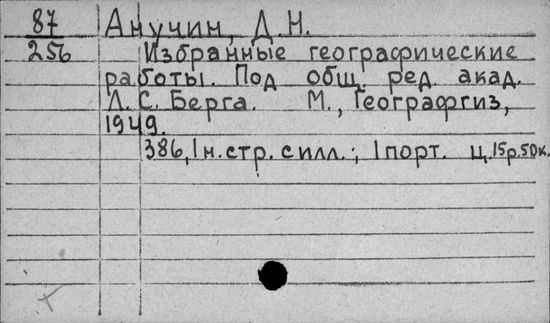 87 Анучин, Д.Н.
256 Избранные географические
работы. Под общ. ред. акад.
Л.С. Берга. М., Географгиз,
1949.
386, 1 н. стр. с илл.; 1 порт. ц. 15р.50к.